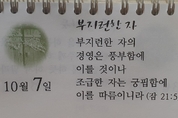 부지런한 자
부지런한 자의
경영은 풍부함에
이를 것이나
조급한 자는 궁핍함에
이를 따름이니라 (잠 21:5
10월 7일